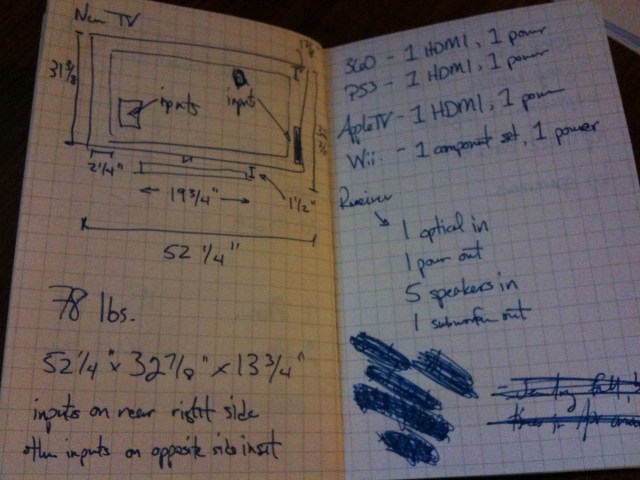 New TV
31 3/8
inputs
inputs
2 1/4"
19 3/4"
1 1/2"
52 1/4"
78 lbs.
52 1/4" x 32 7/8" x 13 3/4"
inputs on rear right side
other inputs on opposite side inset
360 - 1 HDMI, 1 power
PS3 - 1 HDMI, 1 power
AppleTV - 1 HDMI, 1 power
Wii - 1 component set, 1 power
Receiver
1 optical in
1 power out
5 speakers in
1 subwoofer out